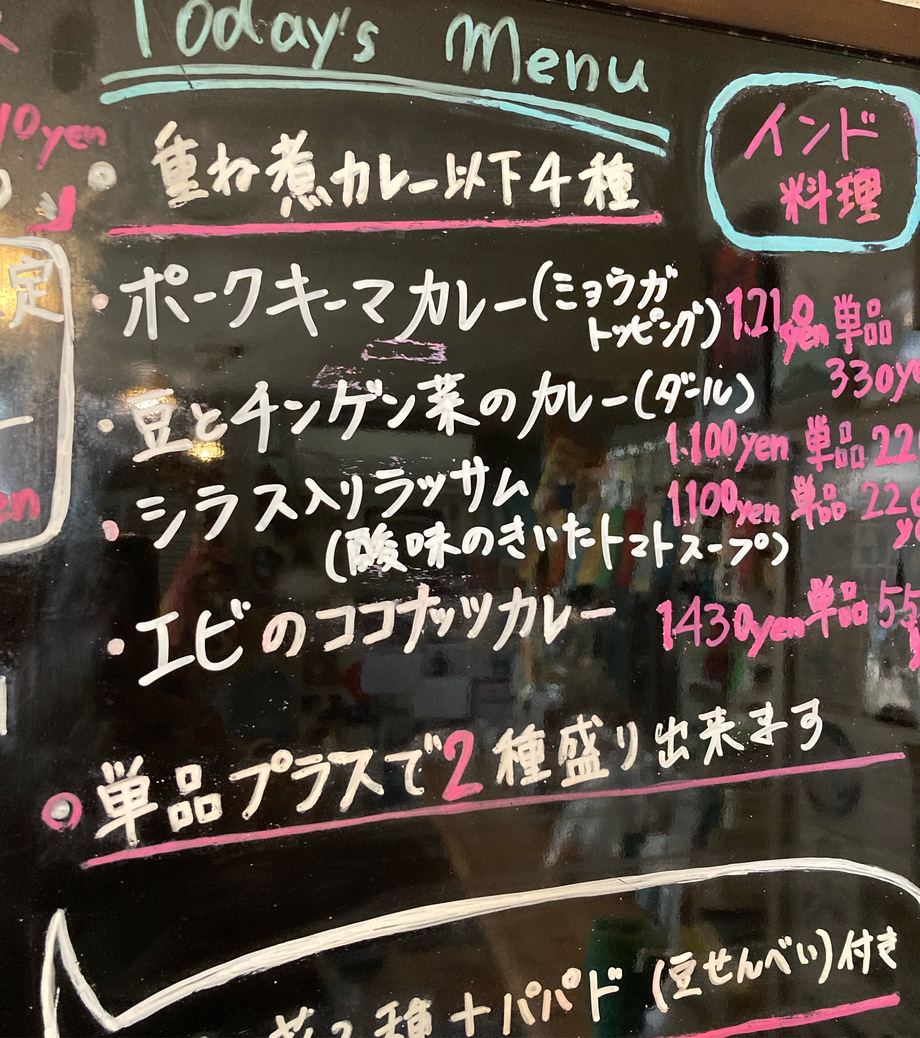 Today's Menu
インド
料理
10yen
重ね煮カレー以下4種
定
・ポークキーマカレー(ミョウガ
トッピング) 1.210yen 単品
330ye
・豆とチンゲン菜のカレー(ダール)
1.100yen 単品 22
・シラス入りラッサム 1100yen 単品 220
(酸味のきいたトマトスープ) y
en
・エビのココナッツカレー 1430yen 単品 55
単品プラスで2種盛り出来ます
菜2種+パパド(豆せんべい)付き